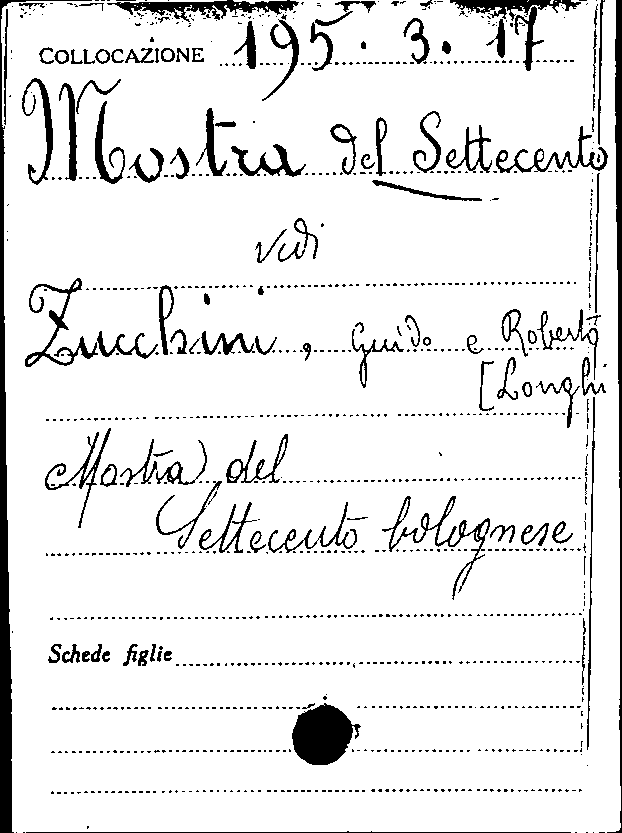 COLLOCAZIONE 195. 3. 17
Mostra del Settecento
vedi
Zucchini, Guido e Roberto
[Longhi
Mostra del
Settecento bolognese
Schede figlie